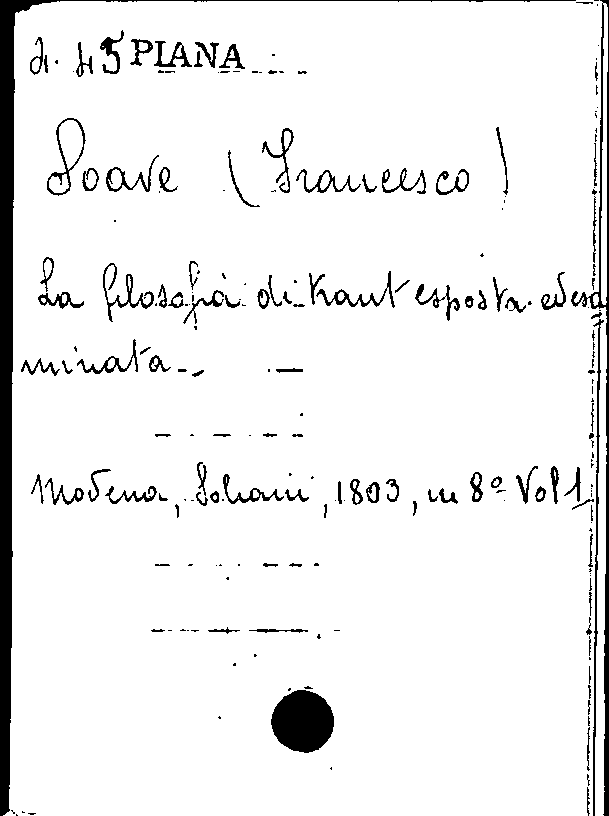 4. 45 PIANA
Soave (Francesco)
La filosofia di Kant esposta ed esa
minata -
Modena, Soliani, 1803, in 8º Vol 1